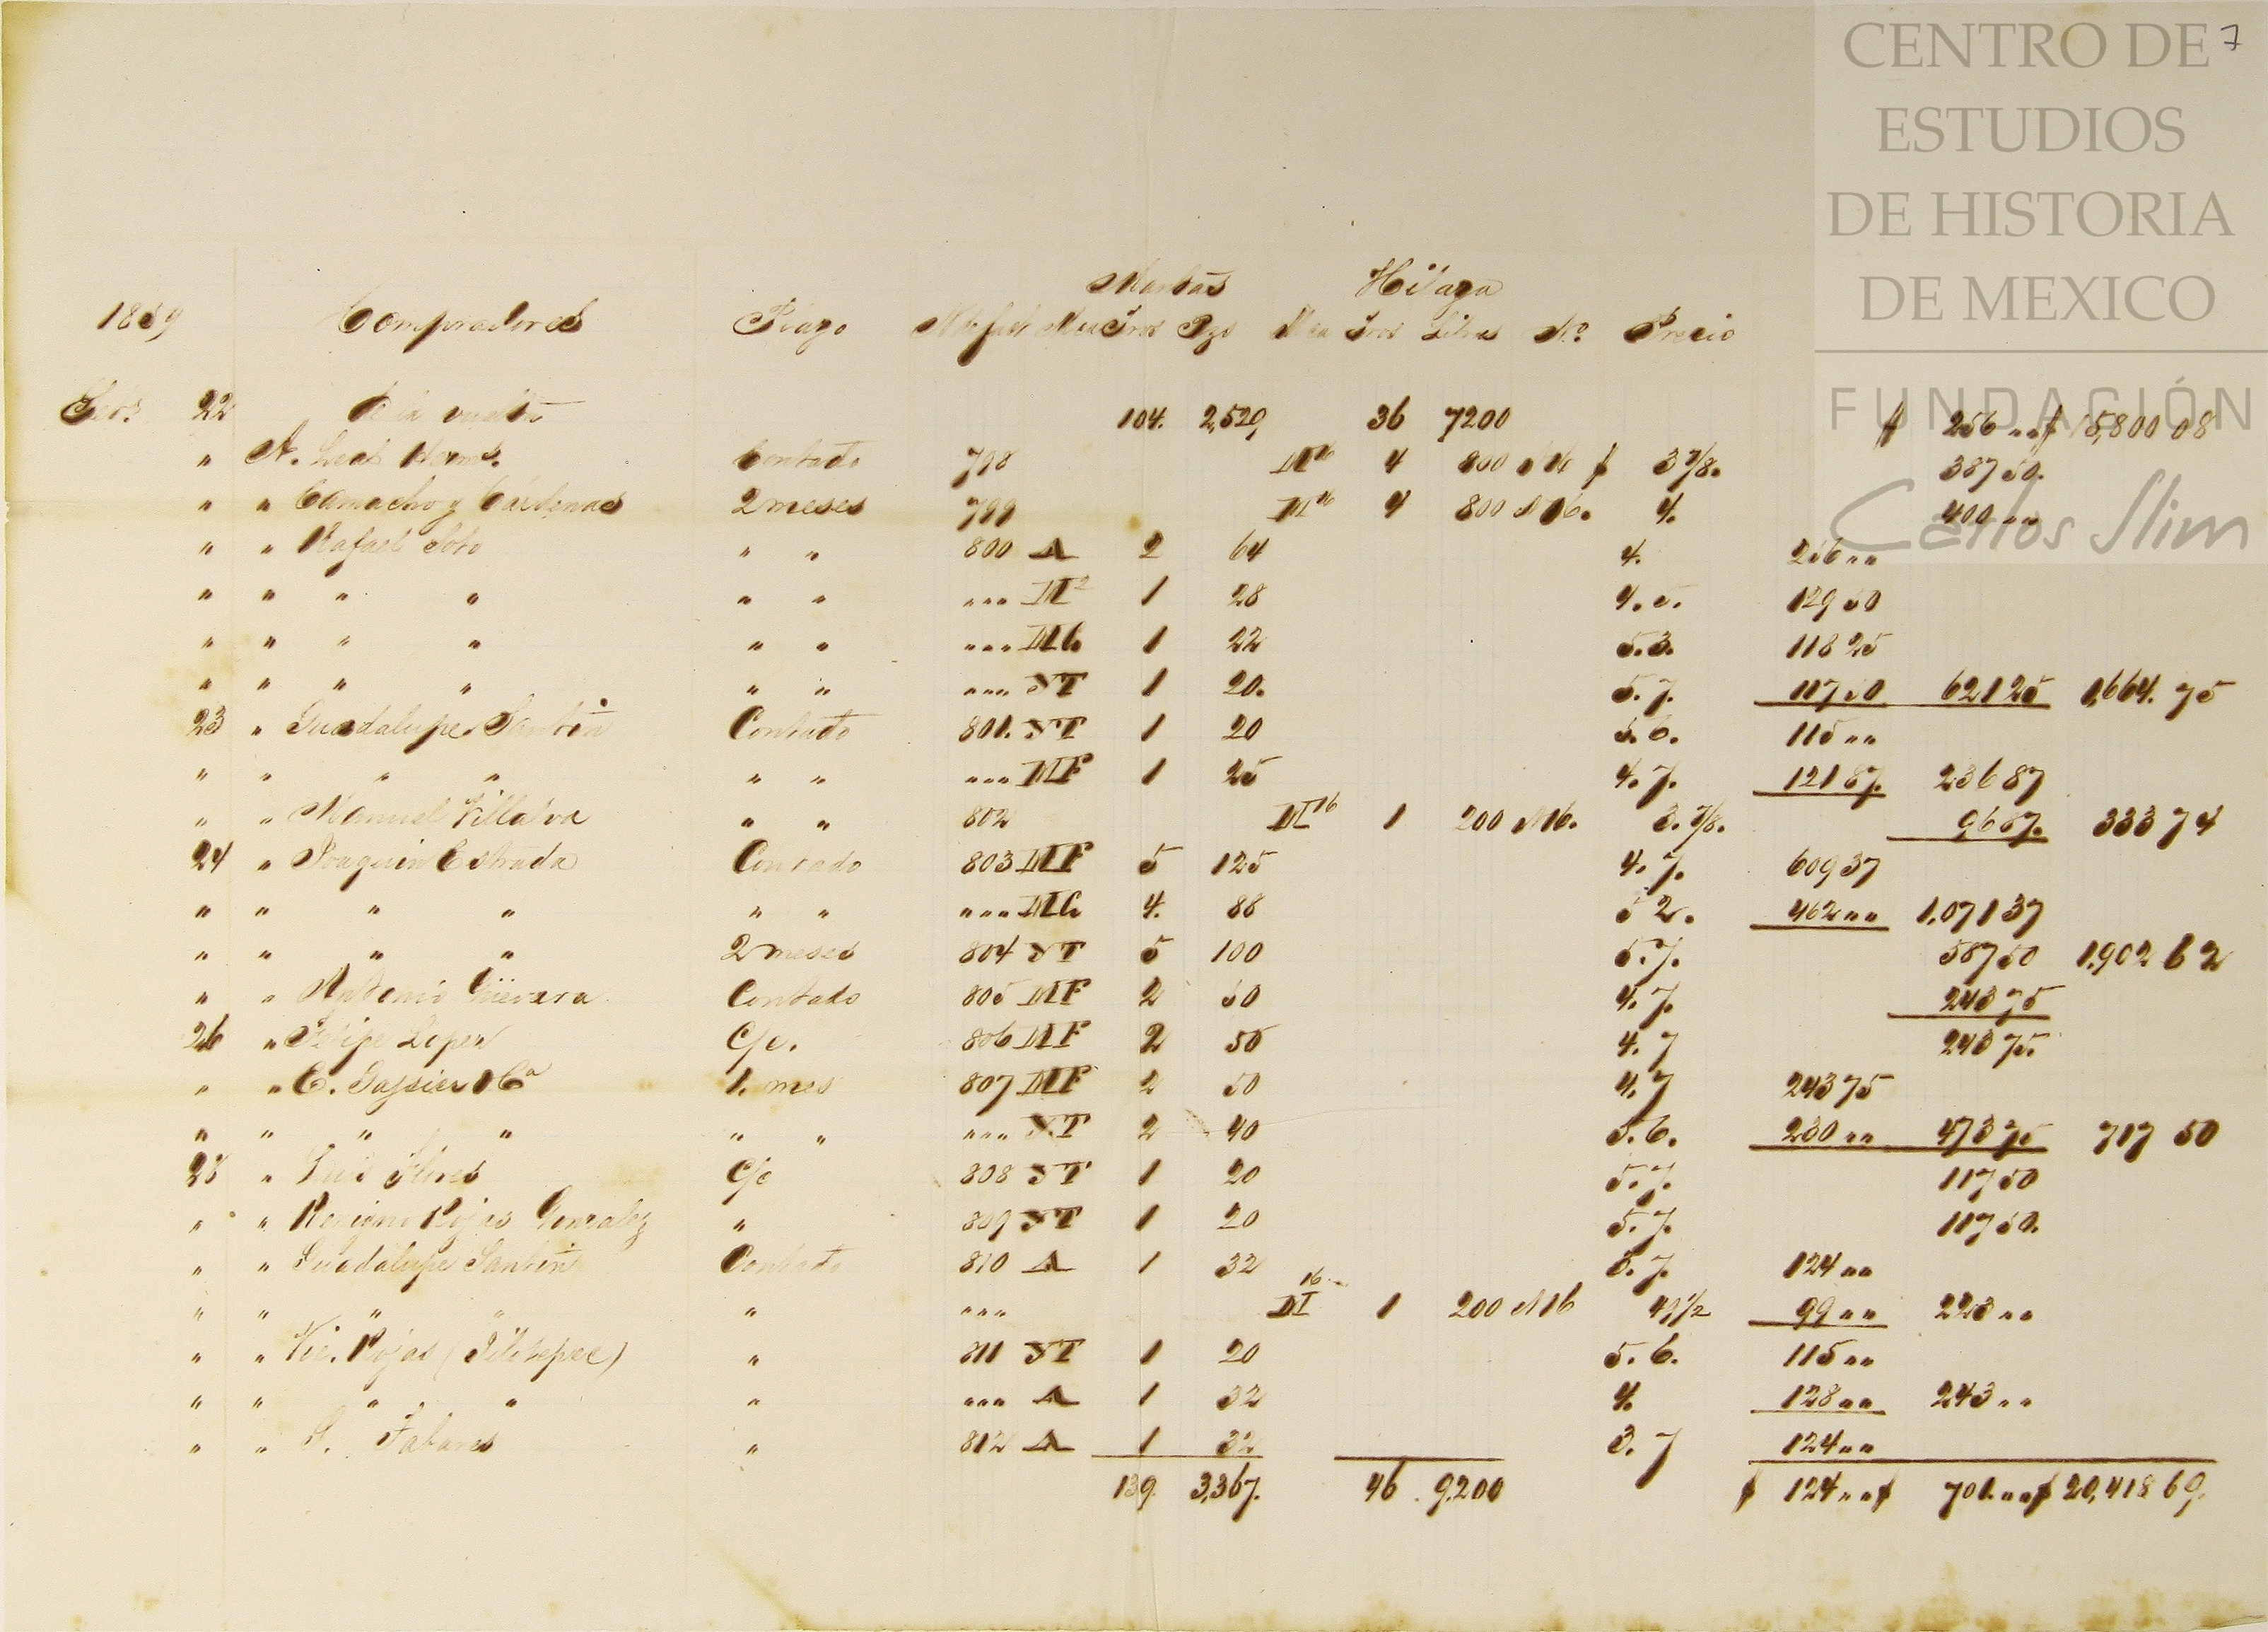 CENTRO DE
ESTUDIOS
DE HISTORIA
DE MEXICO
FUNDACIÓN
Carlos Slim
7
Mantas Hilaza
1889 Compradores Plazo Mca Tros Pzs Mca Tros Libras No. Precio
22 De la vuelta 104. 2,529 36 7200 $ 256 „„ $ 15,800 08
„ A. Leal Herms. Contado 798 M16 4 800 N16 $ 3 7/8. 387 50.
„ „ Camacho y Cárdenas 2 meses 799 M16 4 800 N16. 4. 400 „„
„ „ Rafael Soto „ „ 800 A 2 64 4. 256 „„
„ „ „ „ „ „ „„„ M2 1 28 4. 5. 129 50
„ „ „ „ „ „ „„„ 1 22 5.3. 118 25
„ „ „ „ „ „ „„„ ST 1 20. 5. 7. 117 50 621 25 1,664. 75
23 „ Guadalupe Santin Contado 801. ST 1 20 5. 6. 115 „„
„ „ „ „ „ „ „„„ MF 1 25 4. 7. 121 87. 236 87
„ „ Manuel Villalva „ „ 802 M16 1 200 N16. 3. 7/8. 96 87. 333 74
24 „ Joaquin Estrada Contado 803 MF 5 125 4. 7. 609 37
„ „ „ „ „ „ „„„ 4. 88 5 2. 462 „„ 1,071 37
„ „ „ „ 2 meses 804 ST 5 100 5.7. 587 50 1,902 62
„ „ Antonio Guevara Contado 805 MF 2 50 4. 7. 243 75
26 „ Felipe Lopez C/c. 806 MF 2 50 4. 7 243 75.
„ „ C. 1. mes 807 MF 2 50 4. 7 243 75
„ „ „ „ „ „ „„„ ST 2 40 5. 6. 230 „„ 473 75 717 50
28 „ Luis Flores C/c 808 ST 1 20 5. 7. 117 50
„ „ Benigno Rojas Gonzalez „ 809 ST 1 20 5. 7. 117 50.
„ „ Guadalupe Santin Contado 810 A 1 32 3. 7. 124 „„
„ „ „ „ „ „„„ M16 1 200 N16 99 „„ 223 „„
„ „ Vic. Rojas (Jilotepec) „ 811 ST 1 20 5. 6. 115 „„
„ „ „ „ „ „„„ A 1 32 4. 128 „„ 243 „„
„ „ S. Tabares „ 812 A 1 32 3. 7 124 „„
139. 3,367. 46. 9,200 $ 124 „„ $ 701. „„ $ 20,418 69.